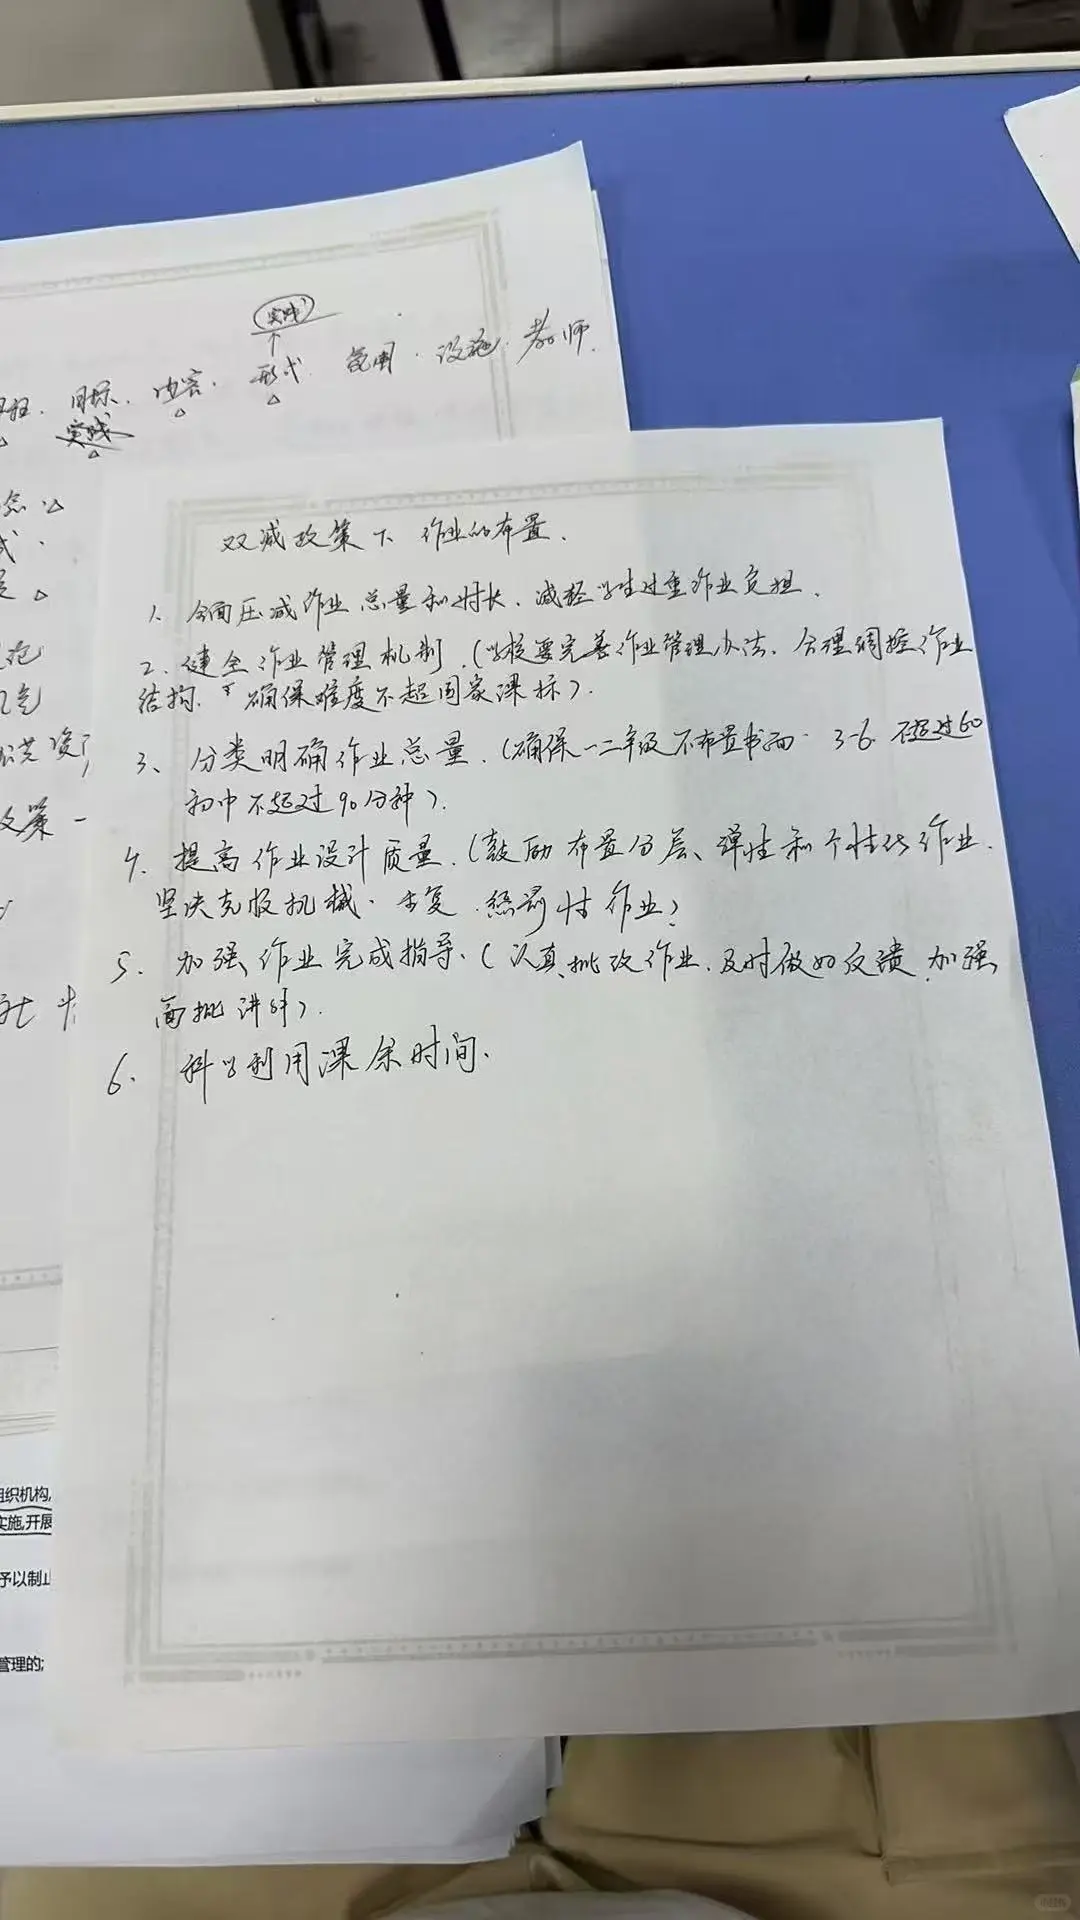 实践
形式
范围
设施
教师
目标
内容
实践
双减政策下 作业的布置.
1. 全面压减作业总量和时长、减轻学生过重作业负担.
2. 健全作业管理机制.(学校要完善作业管理办法、合理调控作业
结构. 确保难度不超国家课标).
3、分类明确作业总量.(确保一二年级不布置书面. 3-6 不超过60
初中不超过90分钟).
4. 提高作业设计质量.(鼓励布置分层、弹性和个性化作业.
坚决克服机械、重复、惩罚性作业)
5. 加强作业完成指导、(认真批改作业、及时做好反馈 加强
面批讲解).
6. 科学利用课余时间.
组织机构,
实施,开展
予以制止
管理的;